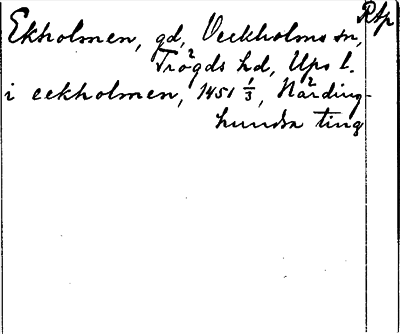 Rtp
Ekholmen, gd, Veckholms sn,
Trögds hd, Ups l.
i eekholmen, 1451 1/3, Närding-
hundra ting